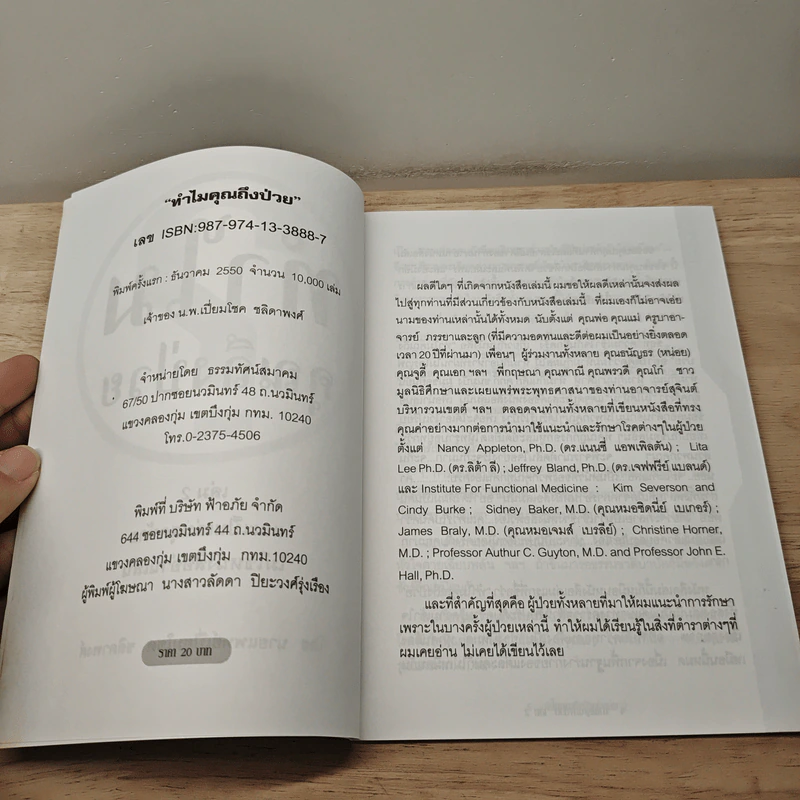 "ทำไมคุณถึงป่วย"
เลข ISBN:987-974-13-3888-7
พิมพ์ครั้งแรก : ธันวาคม 2550 จำนวน 10,000 เล่ม
เจ้าของ น.พ.เปี่ยมโชค ชลิดาพงศ์
จำหน่ายโดย ธรรมทัศน์สมาคม
67/50 ปากซอยนวมินทร์ 48 ถ.นวมินทร์
แขวงคลองกุ่ม เขตบึงกุ่ม กทม. 10240
โทร.0-2375-4506
พิมพ์ที่ บริษัท ฟ้าอภัย จำกัด
644 ซอยนวมินทร์ 44 ถ.นวมินทร์
แขวงคลองกุ่ม เขตบึงกุ่ม กทม.10240
ผู้พิมพ์ผู้โฆษณา นางสาวลัดดา ปิยะวงศ์รุ่งเรือง
ราคา 20 บาท
ผลดีใดๆ ที่เกิดจากหนังสือเล่มนี้ ผมขอให้ผลดีเหล่านั้นจงส่งผล
ไปสู่ทุกท่านที่มีส่วนเกี่ยวข้องกับหนังสือเล่มนี้ ที่ผมเองก็ไม่อาจเอ่ย
นามของท่านเหล่านั้นได้ทั้งหมด นับตั้งแต่ คุณพ่อ คุณแม่ ครูบาอา-
จารย์ ภรรยาและลูก (ที่มีความอดทนและดีต่อผมเป็นอย่างยิ่งตลอด
เวลา 20 ปีที่ผ่านมา) เพื่อนๆ ผู้ร่วมงานทั้งหลาย คุณธนัญธร (หน่อย)
คุณจูดี้ คุณเอก ฯลฯ พี่กฤษณา คุณพาณี คุณพรวดี คุณโก๋ ชาว
มูลนิธิศึกษาและเผยแพร่พระพุทธศาสนาของท่านอาจารย์สุจินต์
บริหารวนเขตต์ ฯลฯ ตลอดจนท่านทั้งหลายที่เขียนหนังสือที่ทรง
คุณค่าอย่างมากต่อการนำมาใช้แนะนำและรักษาโรคต่างๆในผู้ป่วย
ตั้งแต่ Nancy Appleton, Ph.D. (ดร.แนนซี่ แอพเพิลตัน) ; Lita
Lee Ph.D. (ดร.ลิต้า ลี) ; Jeffrey Bland, Ph.D. (ดร.เจฟฟรีย์ แบลนด์)
และ Institute For Functional Medicine ; Kim Severson and
Cindy Burke ; Sidney Baker, M.D. (คุณหมอซิดนี่ย์ เบเกอร์) ;
James Braly, M.D. (คุณหมอเจมส์ เบรลี่ย์) ; Christine Horner,
M.D. ; Professor Authur C. Guyton, M.D. and Professor John E.
Hall, Ph.D.
และที่สำคัญที่สุดคือ ผู้ป่วยทั้งหลายที่มาให้ผมแนะนำการรักษา
เพราะในบางครั้งผู้ป่วยเหล่านี้ ทำให้ผมได้เรียนรู้ในสิ่งที่ตำราต่างๆที่
ผมเคยอ่าน ไม่เคยได้เขียนไว้เลย